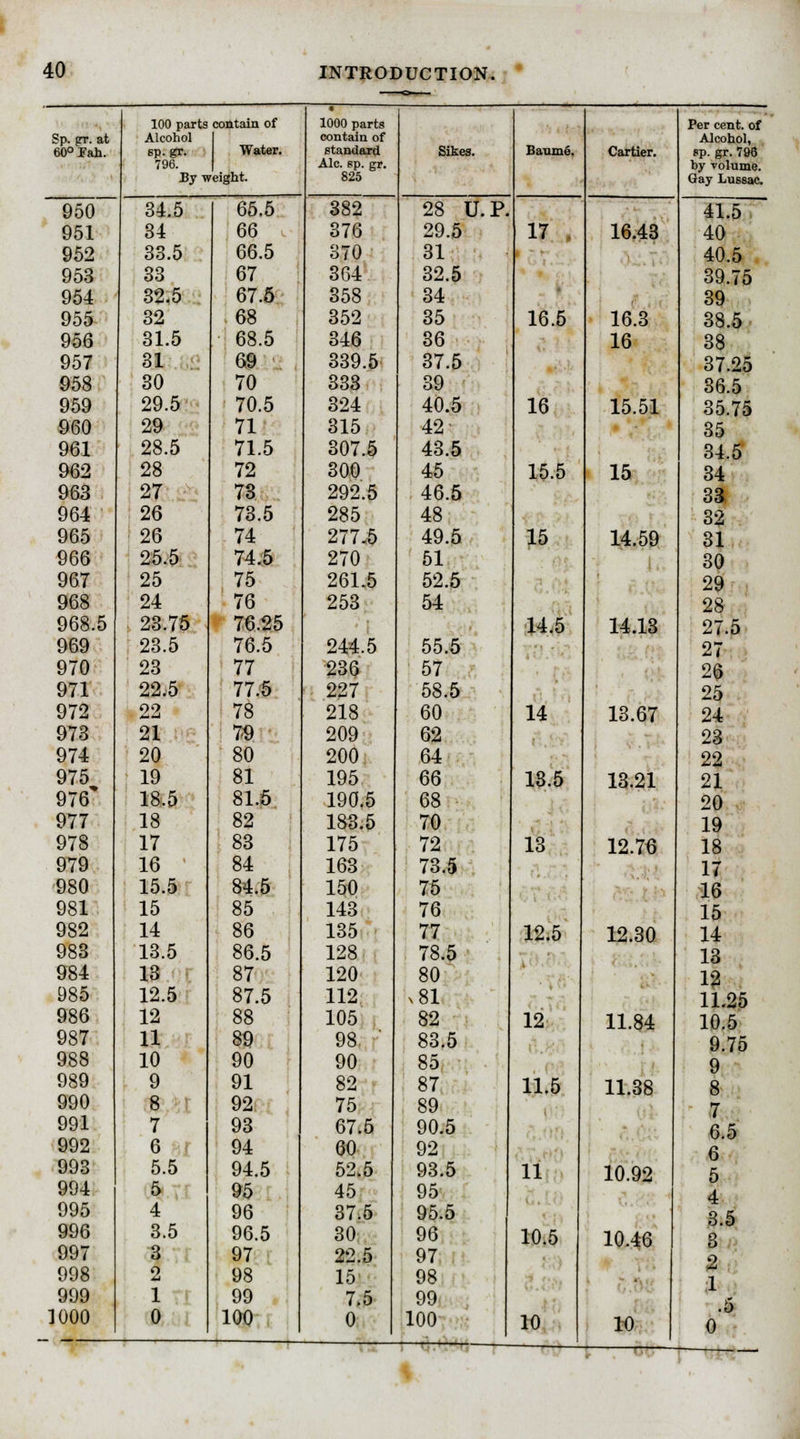 40 INTRODUCTION.
Sp. gr. at 60° Fah. | 100 parts contain of Alcohol sp. gr. 796. | Water. By weight. | 1000 parts contain of standard Alc. sp. gr. 825 | Sikes. | Baumé. | Cartier. | Per cent. of Alcohol, sp. gr. 796 by volume. Gay Lussac.
950 34.5 65.5 382 28 U.P. 41.5
951 34 66 376 29.5 17 16.43 40
952 33.5 66.5 370 31 40.5
953 33 67 364 32.5 39.75
954 32.5 67.5 358 34 39
955 32 68 352 35 16.5 16.3 38.5
956 31.5 68.5 346 36 16 38
957 31 69 339.5 37.5 37.25
958 30 70 333 39 36.5
959 29.5 70.5 324 40.5 16 15.51 35.75
960 29 71 315 42 35
961 28.5 71.5 307.5 43.5 34.5
962 28 72 300 45 15.5 15 34
963 27 73 292.5 46.5 33
964 26 73.5 285 48 32
965 26 74 277.5 49.5 15 14.59 31
966 25.5 74.5 270 51 30
967 25 75 261.5 52.5 29
968 24 76 253 54 28
968.5 23.75 76.25 14.5 14.13 27.5
969 23.5 76.5 244.5 55.5 27
970 23 77 236 57 26
971 22.5 77.5 227 58.5 25
972 22 78 218 60 14 13.67 24
973 21 79 209 62 23
974 20 80 200 64 22
975 19 81 195 66 13.5 13.21 21
976 18.5 81.5 190.5 68 20
977 18 82 183.5 70 19
978 17 83 175 72 13 12.76 18
979 16 84 163 73.5 17
980 15.5 84.5 150 75 16
981 15 85 143 76 15
982 14 86 135 77 12.5 12.30 14
983 13.5 86.5 128 78.5 13
984 13 87 120 80 12
985 12.5 87.5 112 81 11.25
986 12 88 105 82 12 11.84 10.5
987 11 89 98 83.5 9.75
988 10 90 90 85 9
989 9 91 82 87 11.5 11.38 8
990 8 92 75 89 7
991 7 93 67.5 90.5 6.5
992 6 94 60 92 6
993 5.5 94.5 52.5 93.5 11 10.92 5
994 5 95 45 95 4
995 4 96 37.5 95.5 3.5
996 3.5 96.5 30 96 10.5 10.46 3
997 3 97 22.5 97 2
998 2 98 15 98 1
999 1 99 7.5 99 .5
1000 0 100 0 100 10 10 0